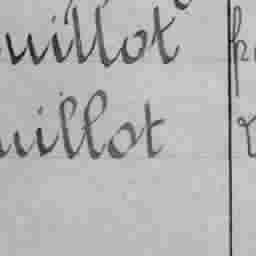 uillot
uillot